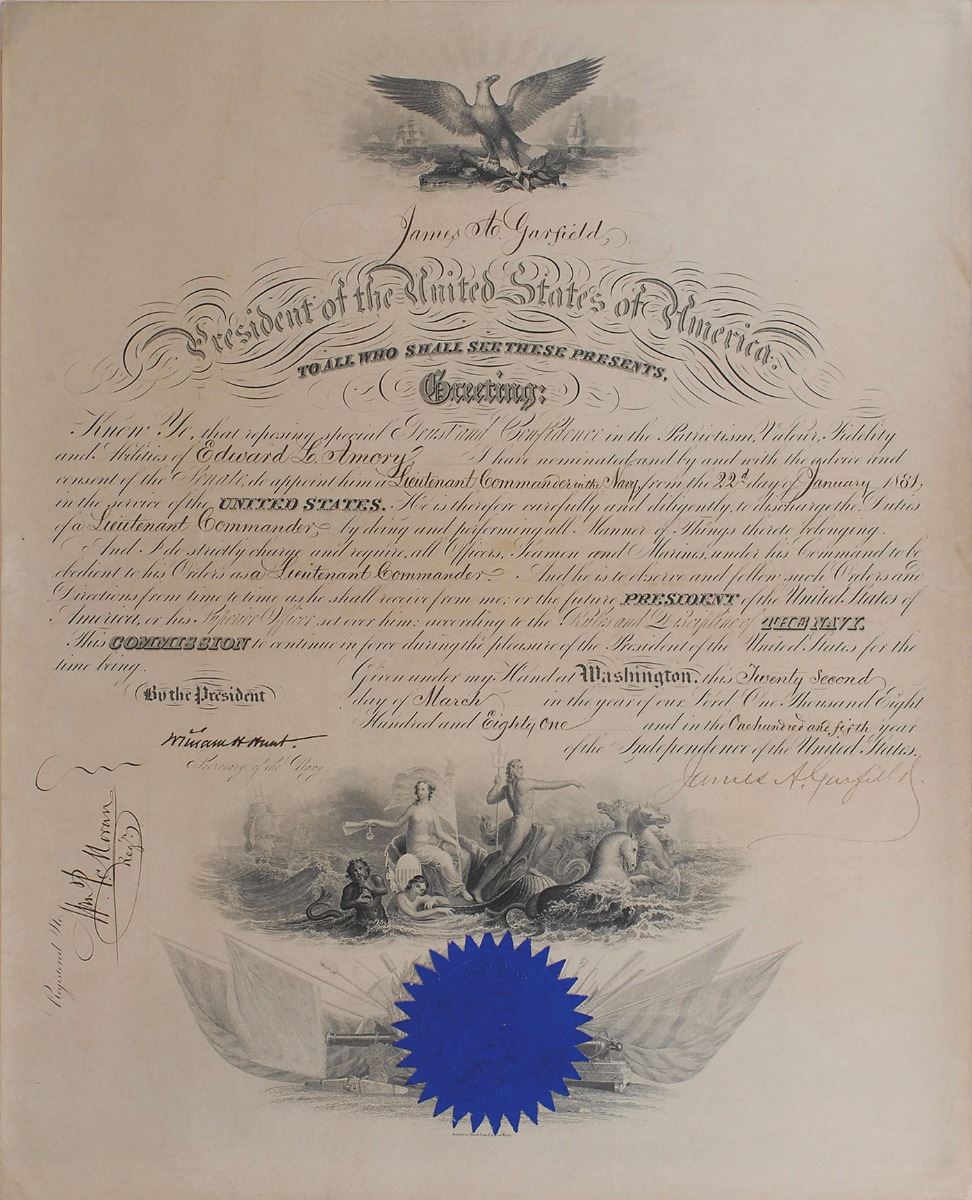 James A. Garfield,
President of the United States of America.
TO ALL WHO SHALL SEE THESE PRESENTS,
Greeting:
Know Ye, that reposing special Trust and Confidence in the Patriotism, Valour, Fidelity
and Abilities of Edward L. Amory I have nominated and by and with the advice and
consent of the Senate, do appoint him a Lieutenant Commander in the Navy from the 22d day of January 1881,
in the service of the UNITED STATES. He is therefore carefully and diligently, to discharge the Duties
of a Lieutenant Commander by doing and performing all Manner of Things thereto belonging.
And I do strictly charge and require, all Officers, Seamen and Marines, under his Command to be
obedient to his Orders as a Lieutenant Commander. And he is to observe and follow such Orders and
Directions from time to time as he shall receive from me; or the future PRESIDENT of the United States of
America, or his Superior Officer set over him; according to the Rules and Discipline of THE NAVY.
This COMMISSION to continue in force during the pleasure of the President of the United States for the
time being.
Given under my Hand at Washington, this Twenty Second
day of March in the year of our Lord One Thousand Eight
Hundred and Eighty One and in the One hundred and fifth year
of the Independence of the United States.
By the President
James A. Garfield
William H. Hunt.
Secretary of the Navy
Registered No.
Wm P Moran
Regr.